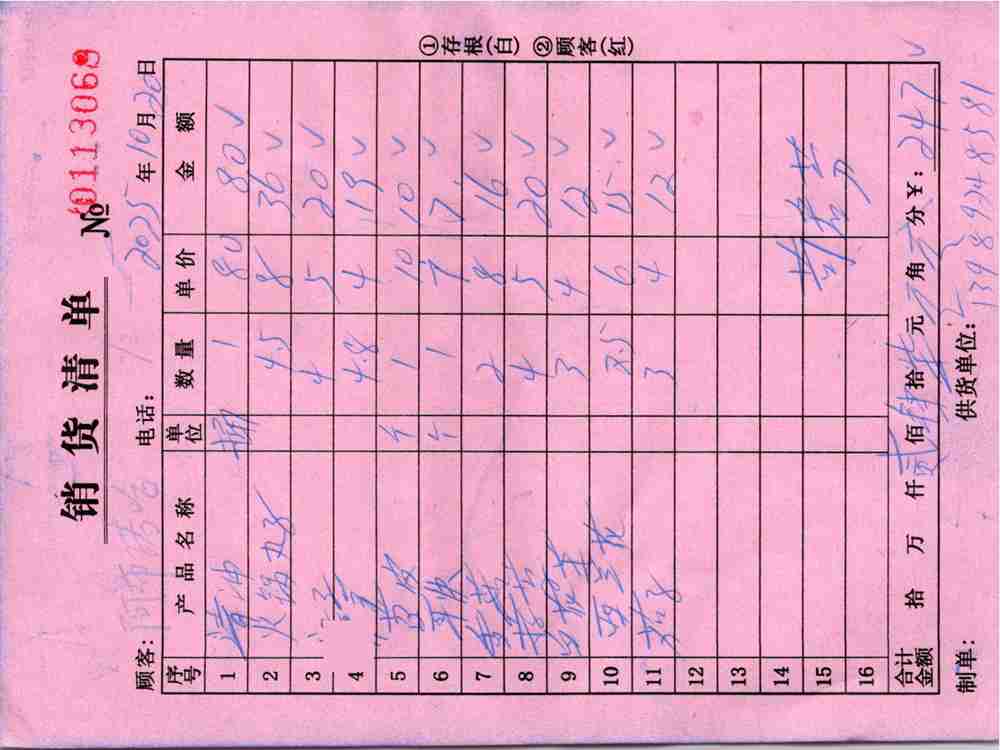 销货清单
№ 0113069
顾客: 电话: 2025年10月20日
序号 产品名称 单位 数量 单价 金额
1 菜油 桶 1 80 80
2 火锅丸子 4.5 8 36
3 4 5 20
4 4.8 4 19
5 个 1 10 10
6 个 1 7 7
7 2 8 16
8 4 5 20
9 3 4 12
10 西兰花 2.5 6 15
11 茄子 3 4 12
12
13
14
15
16
合计金额 拾 万 仟 贰佰肆拾柒元 角 分 ¥:247
制单: 供货单位: 13989248581
①存根(白) ②顾客(红)